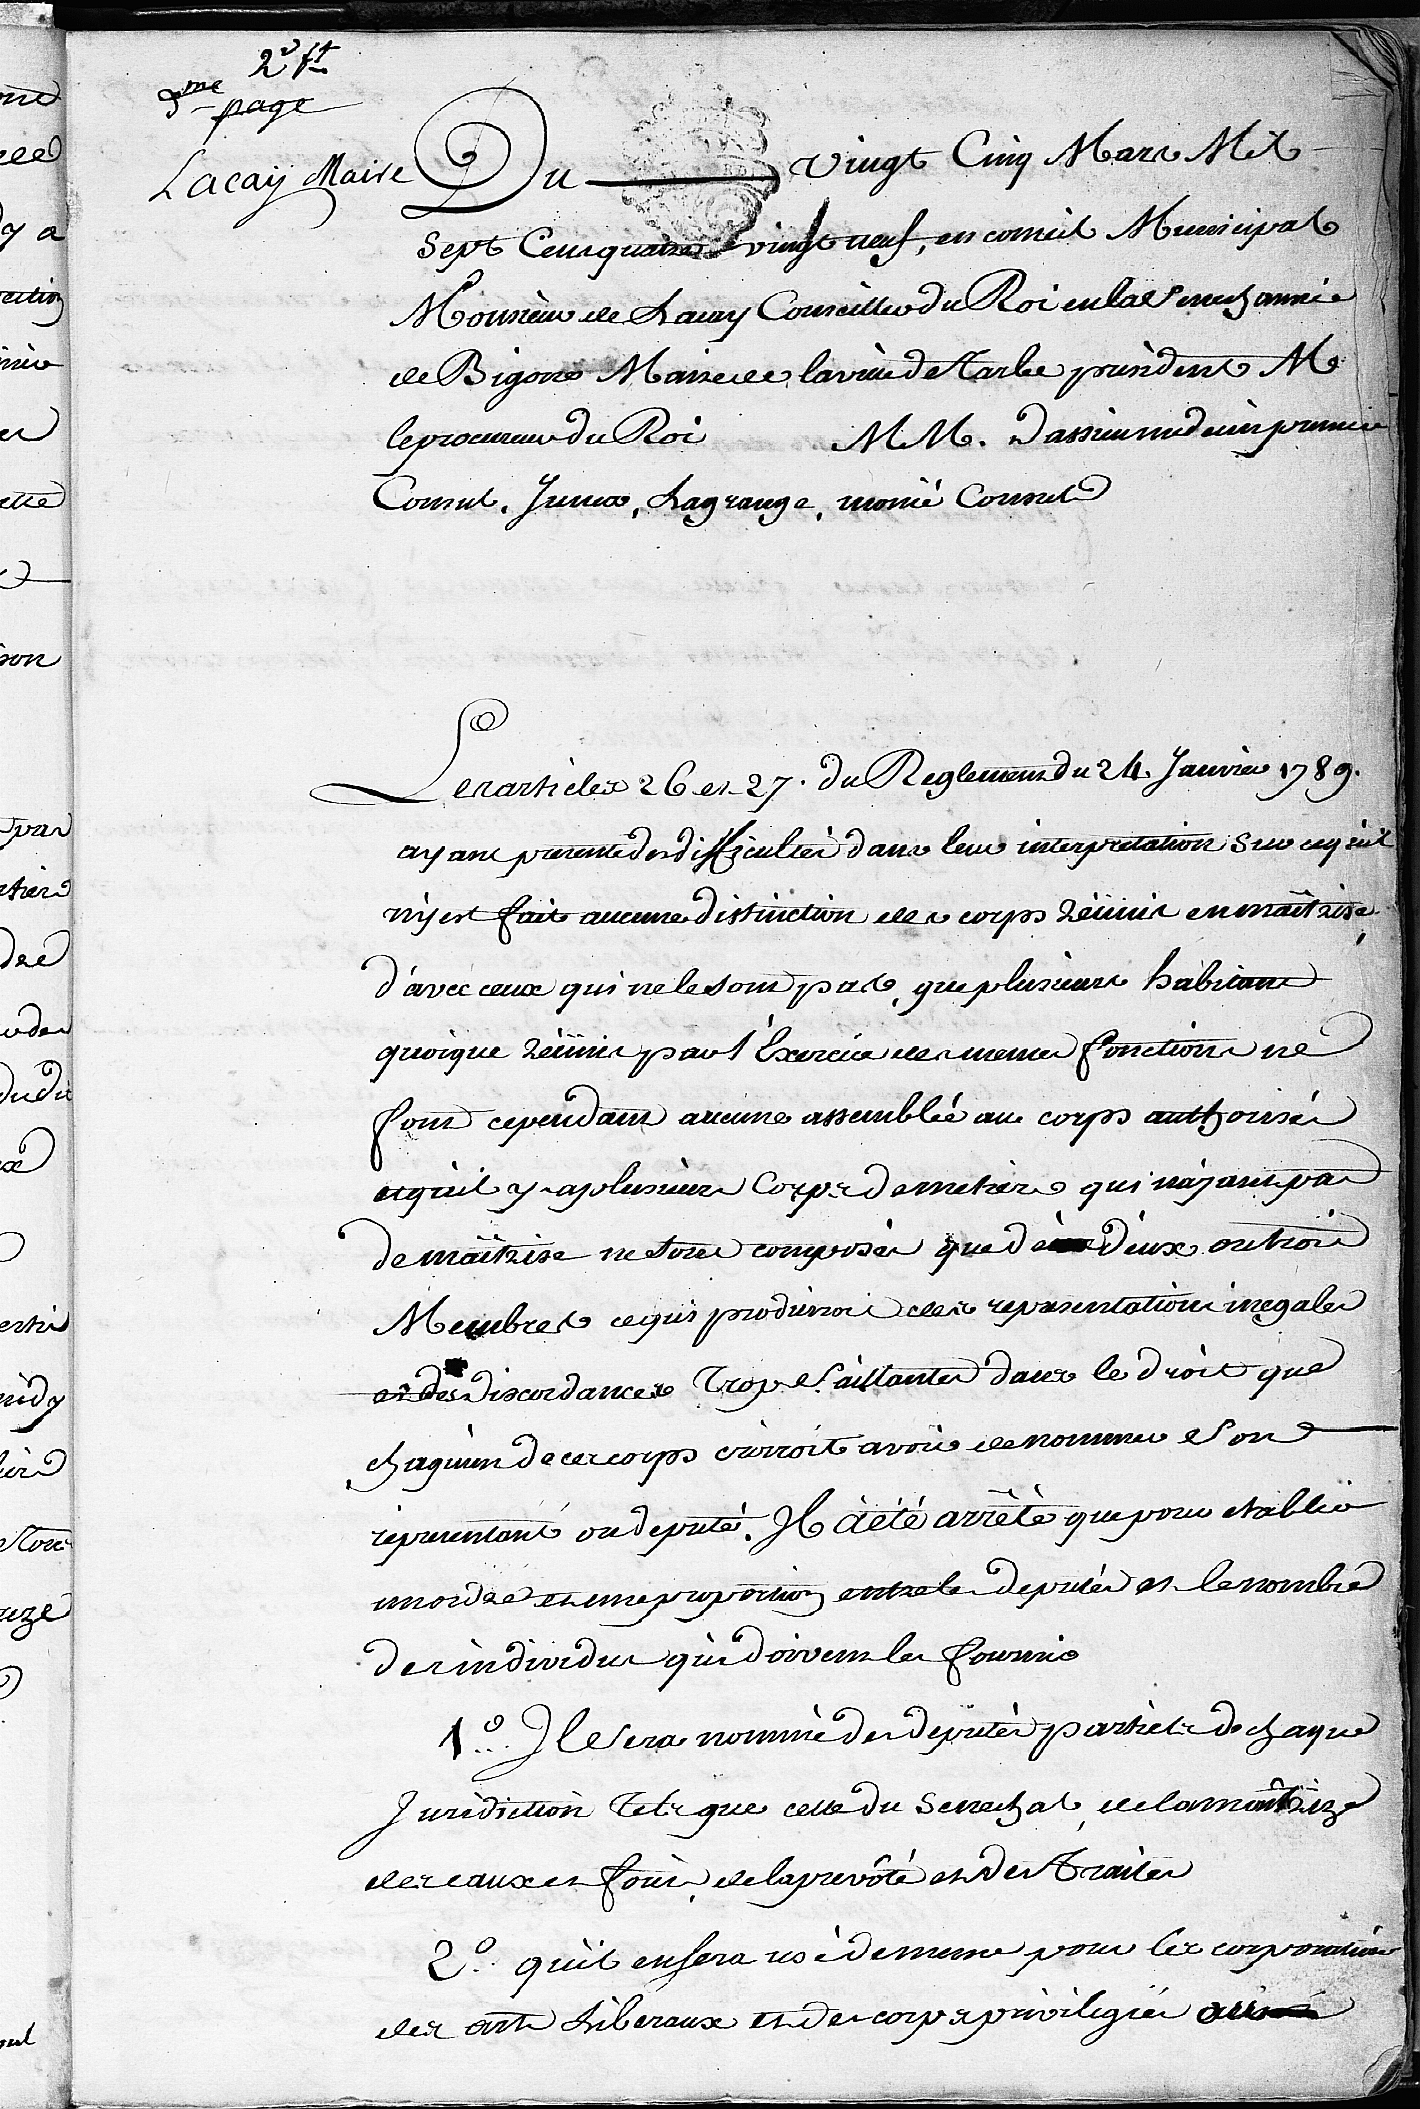 2e ft
3me page
Lacay Maire
Du vingt Cinq Mars Mil
Sept Cens quatre vingt neuf, en conseil Municipal
Monsieur de Lacay Conseiller du Roi en la Senechaussée
de Bigorre Maire de la ville de Tarbe president M
le procureur du Roi MM. Dassieu medecin premier
Consul. Junca, Lagrange, monié Consuls
Les articles 26 et 27. du Reglement du 24. Janvier 1789.
ayant presenté des difficultés dans leur interpretation sur ce qu'il
n'y est fait aucune distinction des corps réunis en maîtrise,
d'avec ceux qui ne le sont pas, que plusieurs habitans
quoique réunis par l'Exercice des memes fonctions ne
font cependant aucune assemblée au corps authorisés
et qu'il y a plusieurs Corps de metiers qui n'ayant pas
de maîtrise ne sont composés que de deux ou trois
Membres ce qui produiroit des representations inegales
et des discordances trop saillantes dans le droit que
chaquun de ces corps croiroit avoir de nommer son
representant ou deputé. Il a été arrêté que pour etablir
un ordre et une proportion entre les deputés et le nombre
des individus qui doivent les fournir
1o. Il sera nommé des deputés partiels de chaque
Jurisdiction tels que celle du Senechal, de la maîtrize
des eaux et forêts, de la prevôté et des Traites
2o. qu'il en sera usé de meme pour les corporations
des arts Liberaux et des corps privilegiés